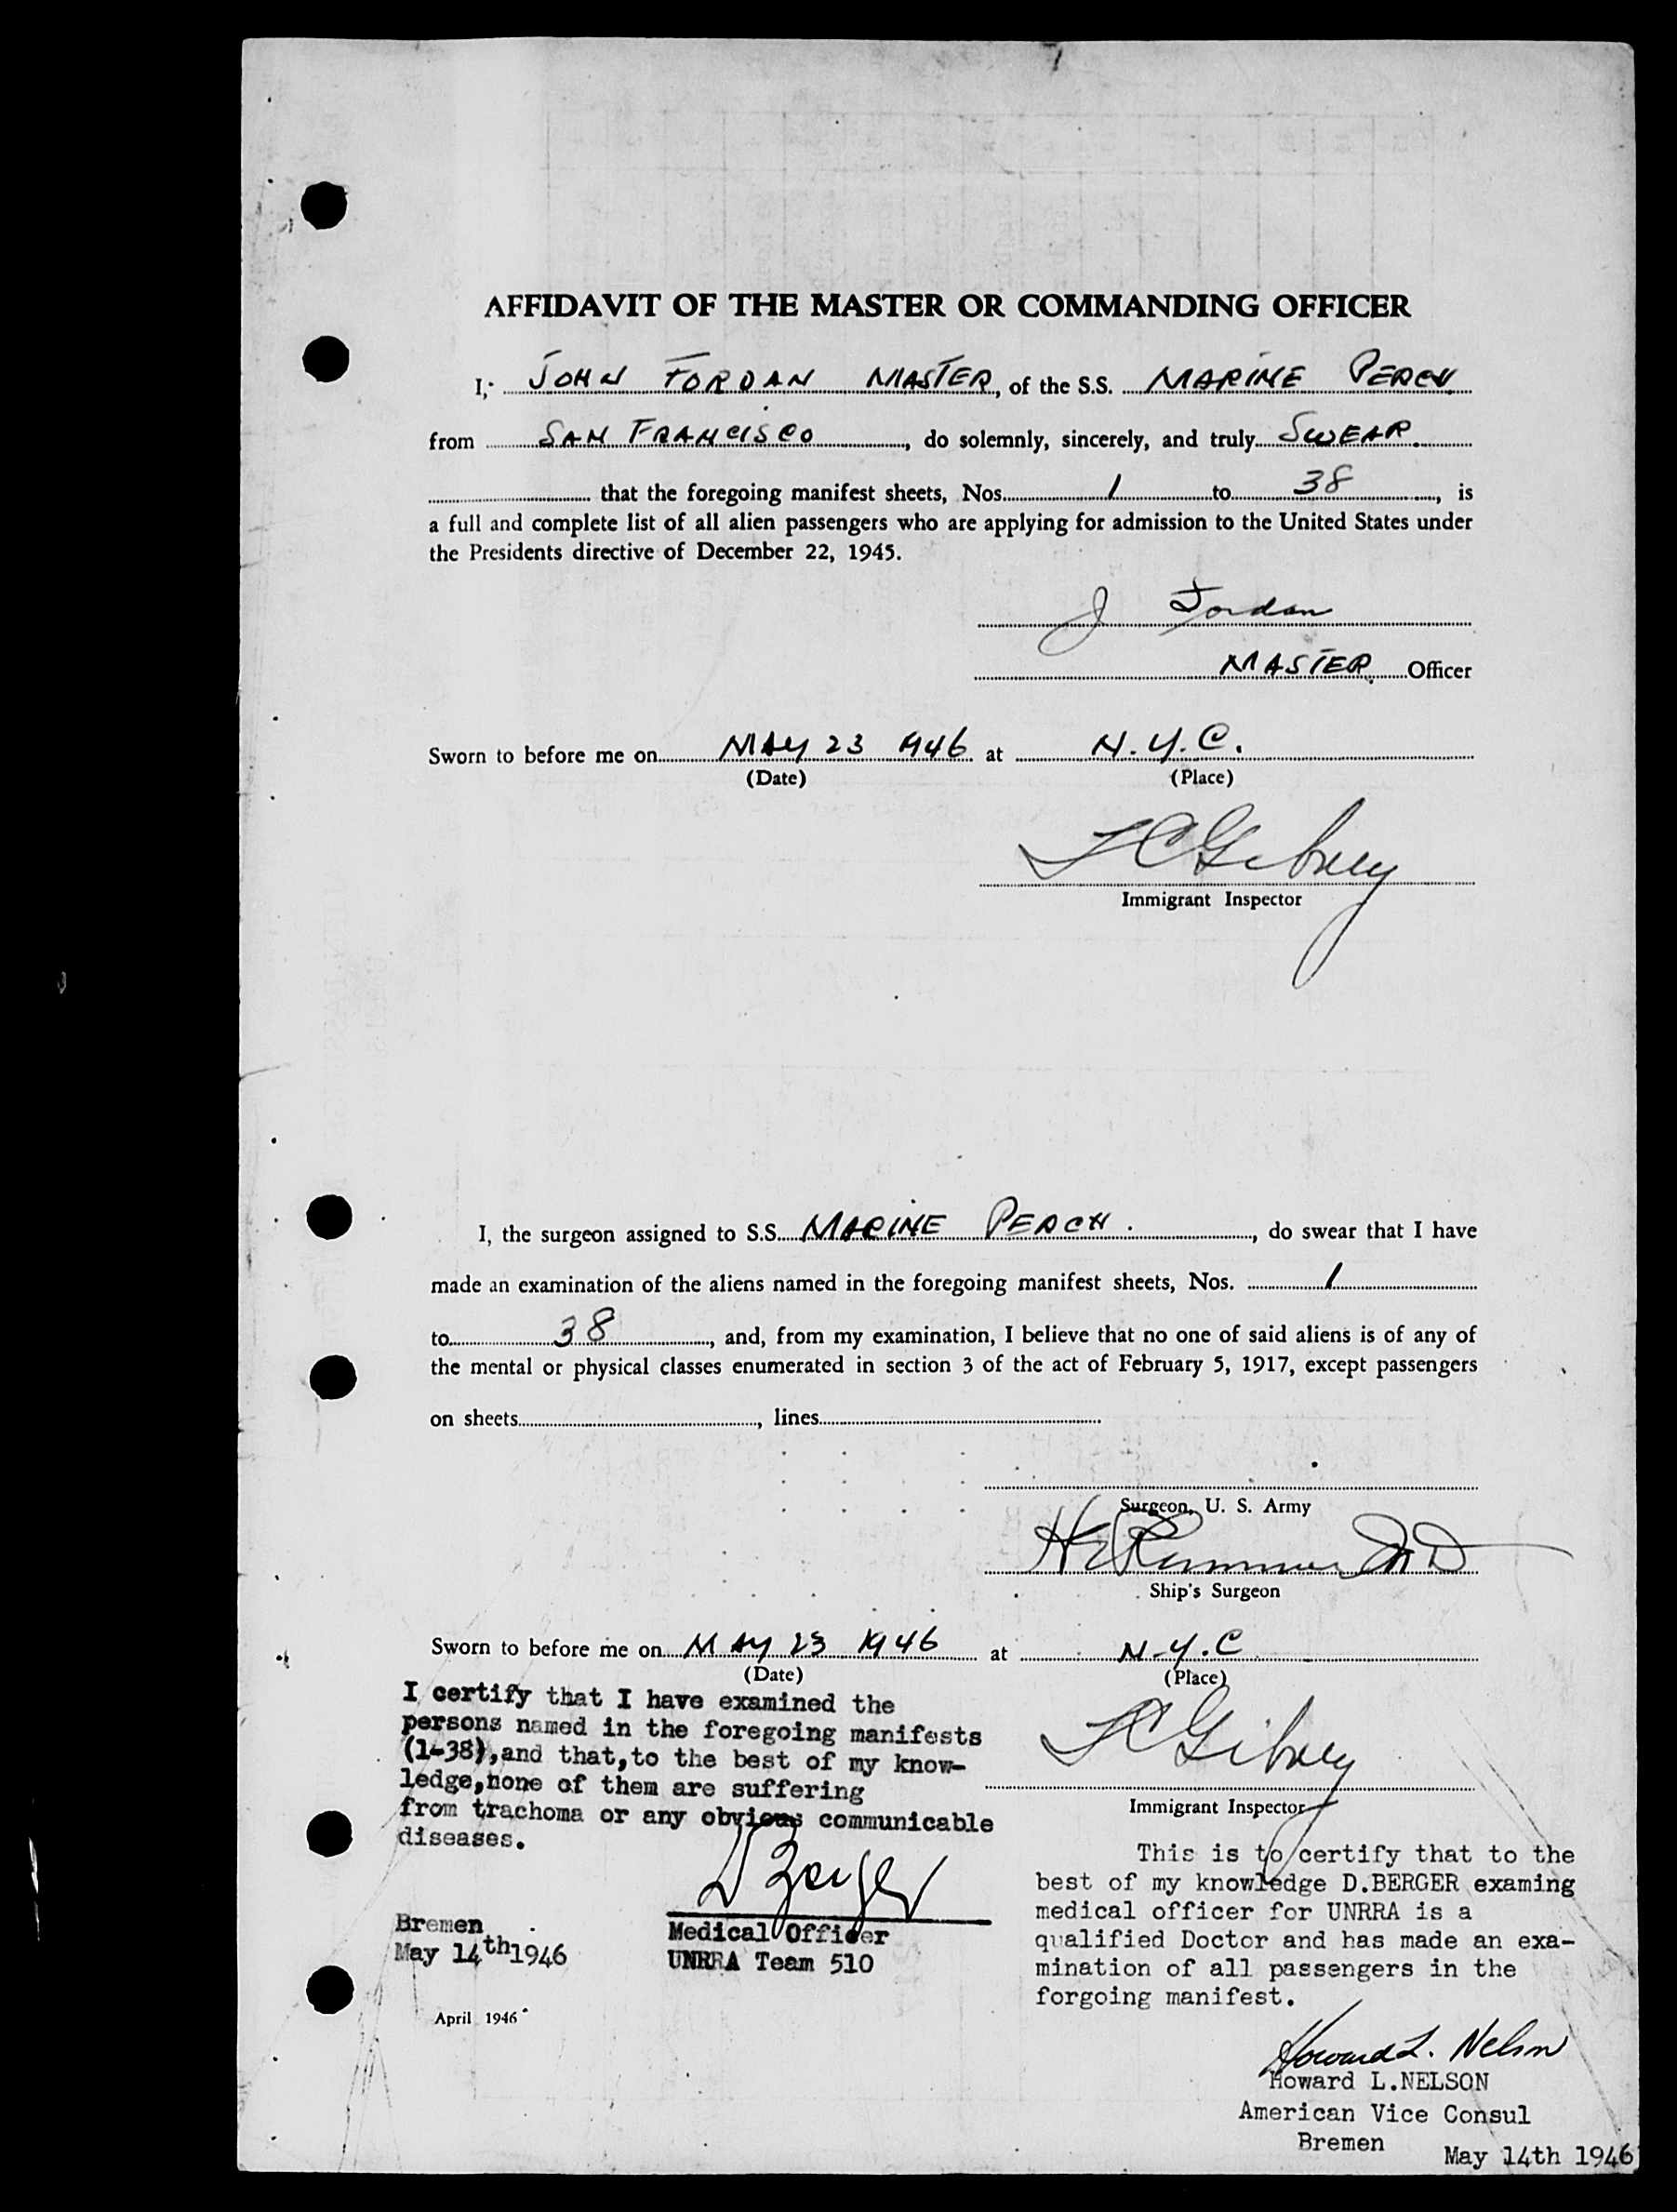 AFFIDAVIT OF THE MASTER OR COMMANDING OFFICER
I, JOHN JORDAN MASTER, of the S.S. MARINE PERCH
from SAN FRANCISCO, do solemnly, sincerely, and truly SWEAR
that the foregoing manifest sheets, Nos. 1 to 38, is
a full and complete list of all alien passengers who are applying for admission to the United States under
the Presidents directive of December 22, 1945.
J Jordan
MASTER Officer
Sworn to before me on MAY 23 1946 at N.Y.C.
(Date) (Place)
Immigrant Inspector
I, the surgeon assigned to S.S. MARINE PERCH, do swear that I have
made an examination of the aliens named in the foregoing manifest sheets, Nos. 1
to 38, and, from my examination, I believe that no one of said aliens is of any of
the mental or physical classes enumerated in section 3 of the act of February 5, 1917, except passengers
on sheets, lines
Surgeon, U. S. Army
Ship's Surgeon
Sworn to before me on MAY 23 1946 at N.Y.C
(Date) (Place)
I certify that I have examined the
persons named in the foregoing manifests
(1-38),and that,to the best of my know-
ledge,none of them are suffering
from trachoma or any obvious communicable
diseases.
D Berger
Bremen
May 14th1946
Medical Officer
UNRRA Team 510
April 1946
Immigrant Inspector
This is to certify that to the
best of my knowledge D.BERGER examing
medical officer for UNRRA is a
qualified Doctor and has made an exa-
mination of all passengers in the
forgoing manifest.
Howard L. Nelson
Howard L.NELSON
American Vice Consul
Bremen
May 14th 1946